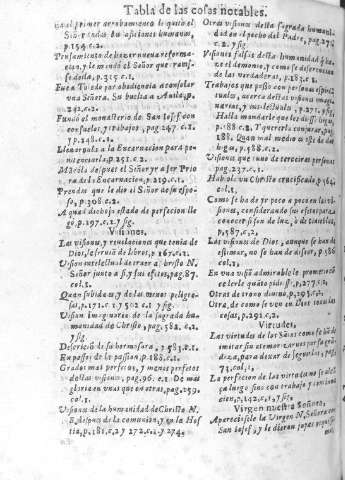 Tabla de las cosas notables.
En el primer arrobamiento le quitò el
Señor todas sus aficiones humanas,
p.154.c.2.
Pensamiento de hazer nueva reforma-
cion, y le mandò el Señor que
p.315 c.1.
Fue a Toledo por obediencia a consolar
una Señora. Su buelta a Avila, p.
242.c.2.
Fundò el monasterio de San Iosef con
consuelos, y trabajos, pag. 247. c.1.
y p.248.c.1.
Llevaronla a la Encarnacion para pe-
nitenciarla, p.251.c.2.
Mandola despues el Señor y a ser Prio
ra de la Encarnacion, p.259.c.1.
Prendas que le dio el Señor de su espo-
so, p.308.c.2.
A qual dichoso estado de perfecion lle-
gò, p.197.c.1. y sig.
Visiones.
Las visiones, y revelaciones que tenia de
Dios, escrivio de libros, p.167.c.1.
Vision intellectual de traer a Christo N.
Señor junto a si, y sus efetos, pag.87.
col.1.
Quan subidas, y de las menos peligro-
sas, p.171.c.1. y 5. c.1. y sig.
Vision imaginaria de la sagrada hu-
manidad de Christo, pag. 582. c.2.
y sig.
Descricion de su hermosura, p.583.c.1.
En passos de la passion p.188.c.1.
Grados mas perfetos, y menos perfetos
destas visiones, pag.96. c.1. De mas
gloria en unas que en otras, pag.259.
col.1.
Visiones de la humanidad de Christo N.
S. despues de la comunion, y en la Hos
tia, p.186.c.2 y 272.c.1. y 274.
Otras visiones de la sagrada humani-
dad en el pecho del Padre, pag.275
c.2. y sig.
Visiones falsas desta humanidad haze
el demonio, y como se diferencian
de las verdaderas, p.183.c.1.
Trabajos que passò con personas espiri-
tuales, acerca destas visiones imagi-
narias, y intelectuales, p.271. y sig.
Halla mandarle que les dè higas,
p.188.c.2. Y quererla conjurar, pag.
186. Quan mal medio es este de dar
higas, p.588.c.2.
Visiones que tuvo de terceras personas
pag.237.c.1.
Hablole un Christo crucificado p.264.
col.1.
Como se ha de ir poco a poco en las vi-
siones, considerando sus efetos para
conocer si son de luz, ò de tinieblas,
p.587.c.2.
Las visiones de Dios, aunque se han de
estimar, no se han de desear, p.586.
col.1.
En una visiõ admirable le prometiò con-
cederle quãto pidiesse, p.277.c.2.
Otras de trono divino, p.295.c.1.
Otra, de como se veen en Dios todas las
cosas, p.291.c.2.
Virtudes.
Las virtudes de los Santos como se hã de
imitar sin atemorizarnos por su grã-
deza, para dexar de seguirlos, pag.
73.col.1.
La perfecion de las virtudes no se alcã-
ça luego sino con trabajo y continua-
cion, p.142.c.1. y sig.
Virgen nuestra Señora.
Apareciòsele la Virgen N. Señora con
San Iosef, y le dieron joyas